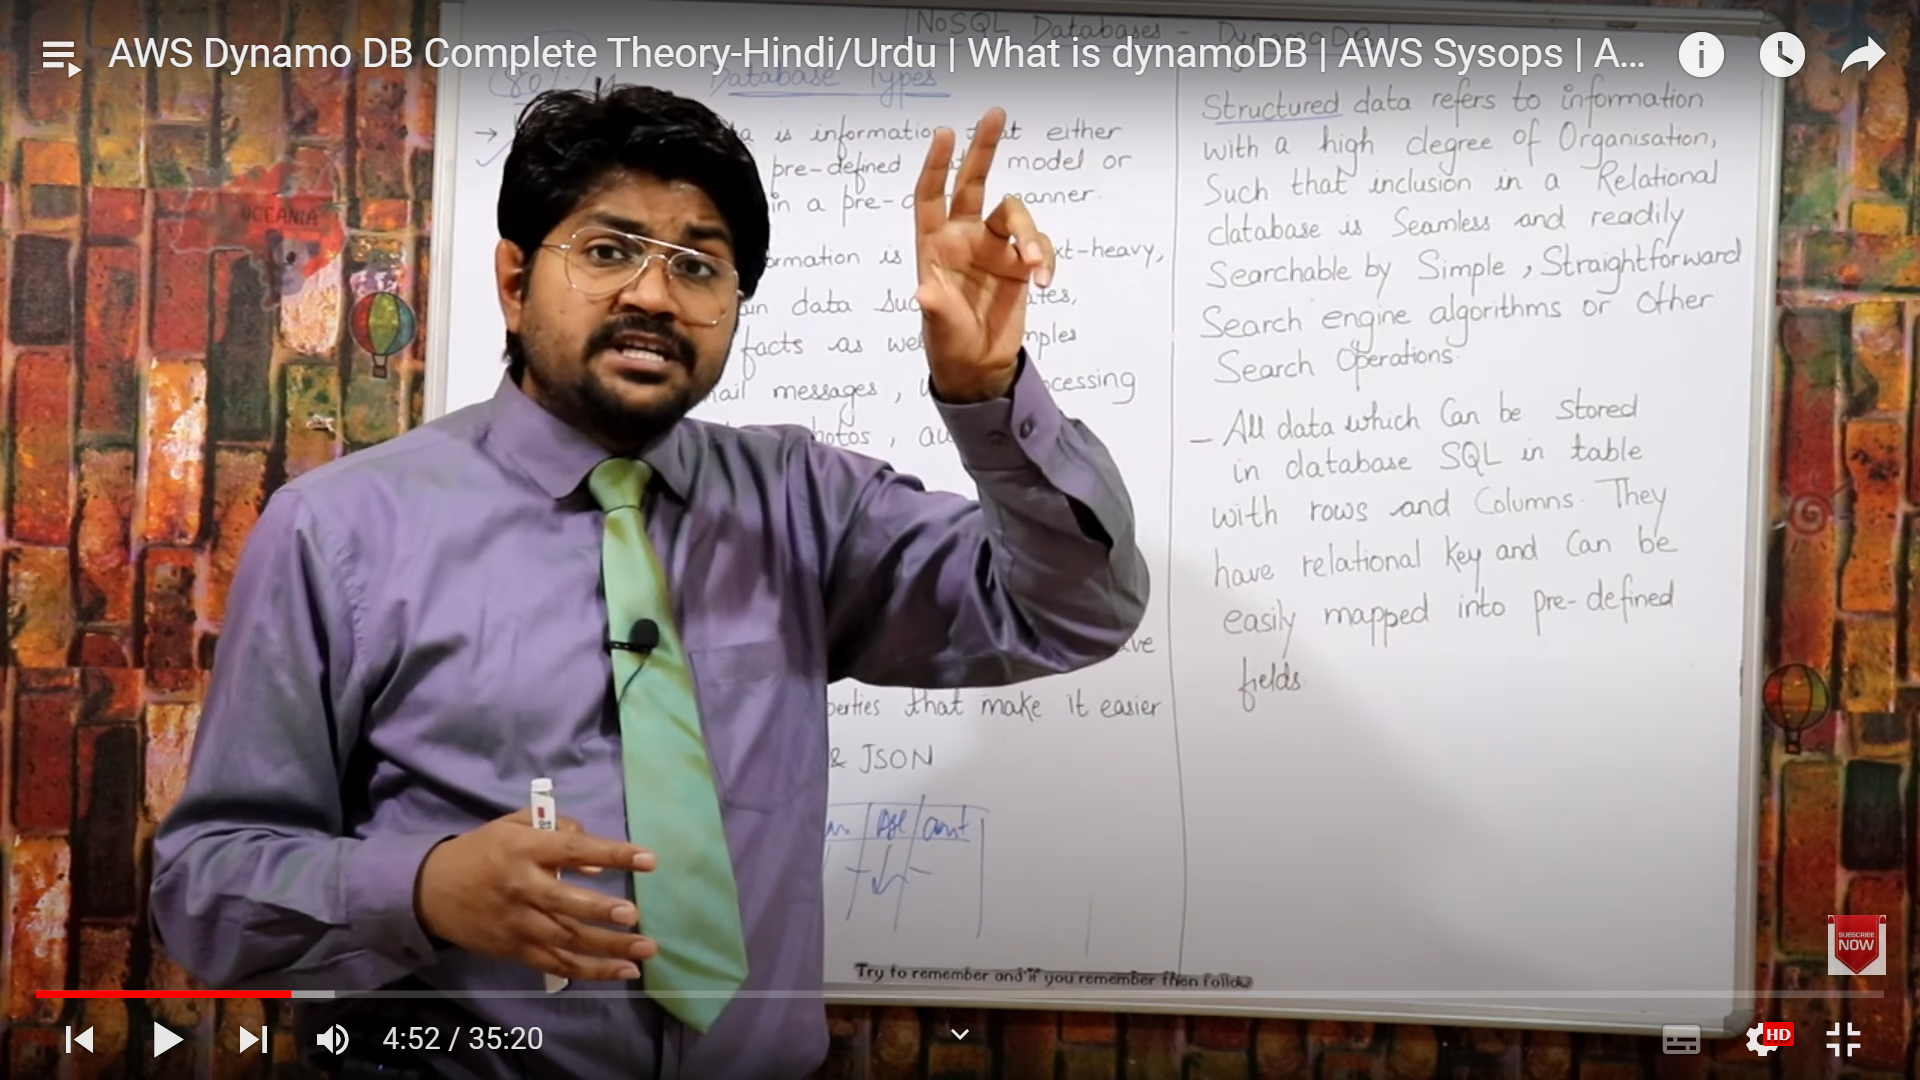 AWS Dynamo DB Complete Theory-Hindi/Urdu | What is dynamoDB | AWS Sysops | A...
NoSQL Databases - DynamoDB
Database Types
is information that either
pre-defined model or
in a pre- manner.
is xt-heavy,
data
facts as
messages,
perties that make it easier
& JSON
Age amt
Structured data refers to information
with a high degree of Organisation,
Such that inclusion in a Relational
database is Seamless and readily
Searchable by Simple, Straightforward
Search engine algorithms or other
Search Operations.
- All data which Can be Stored
in database SQL in table
with rows and Columns. They
have relational key and Can be
easily mapped into pre-defined
fields.
OCEANIA
Try to remember and if you remember then follow
SUBSCRIBE
NOW
4:52 / 35:20
HD